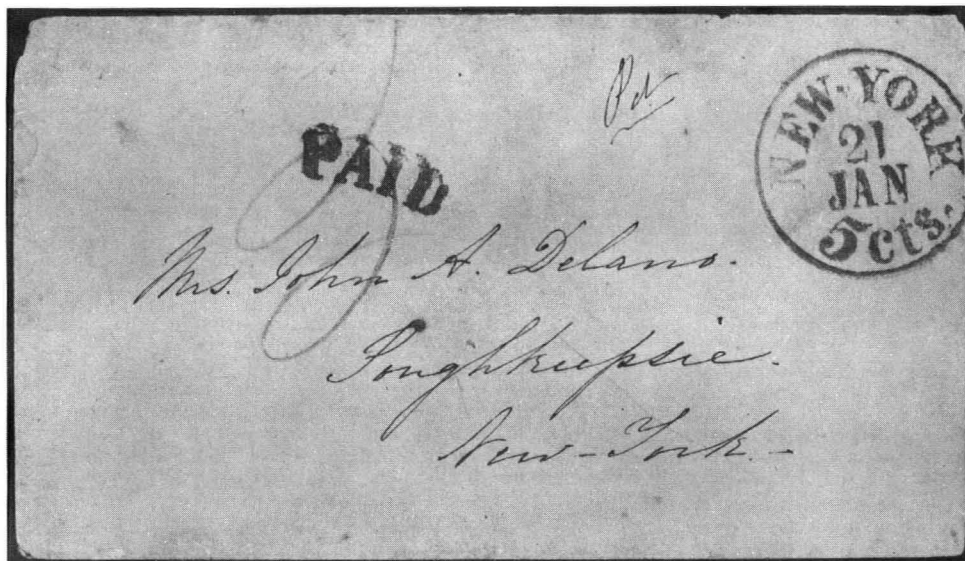 Pd.
NEW-YORK
21
JAN
5 cts.
PAID
3
Mrs. John A. Delano.
Poughkeepsie.
New-York.-